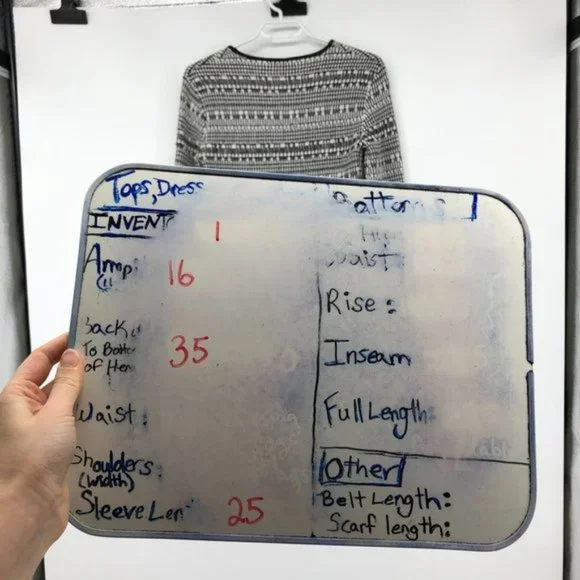 Tops, Dress
INVENT 1
Amp 16
Back
To Botto
of Hem 35
Waist:
Shoulders:
(width)
Sleeve Len 25
Bottoms
Hip
Waist
Rise:
Inseam
Full Length
Other
Belt Length:
Scarf length: